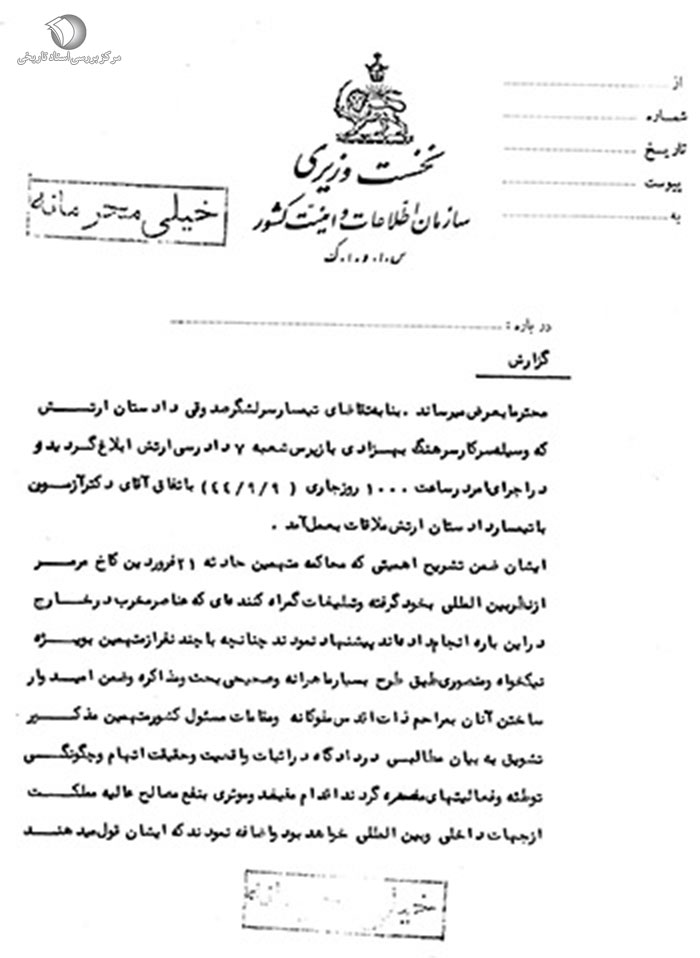 مرکز بررسی اسناد تاریخی
از
شماره
تاریخ
پیوست
به
نخست وزیری
سازمان اطلاعات و امنیت کشور
س.ا.و.ا.ک
خیلی محرمانه
درباره :
گزارش
محترما بعرض میرساند . بنا به تقاضای تیمسار سرلشگر صدوقی دادستان ارتش
که وسیله سرکار سرهنگ بهزادی بازپرس شعبه ۷ دادرسی ارتش ابلاغ گردید و
در اجرای امر در ساعت ۱۰۰۰ روز جاری ( ۴۴/۹/۹) باتفاق آقای دکتر آزمون
با تیمسار دادستان ارتش ملاقات بعمل آمد .
ایشان ضمن تشریح اهمیتی که محاکمه متهمین حادثه ۲۱ فروردین کاخ مرمر
از نظر بین المللی بخود گرفته و تبلیغات گمراه کننده ای که عناصر مخرب در خارج
در این باره انجام داده اند پیشنهاد نمودند چنانچه با چند نفر از متهمین بویژه
نیکخواه و منصوری طبق طرح بسیار ماهرانه و صحیحی بحث و مذاکره و ضمن امیدوار
ساختن آنان بمراحم ذات اقدس ملوکانه و مقامات مسئول کشور متهمین مذکور
تشویق به بیان مطالبی در دادگاه در اثبات واقعیت و حقیقت اتهام و چگونگی
توطئه و فعالیتهای مضره گردند اقدام مفید و موثری بنفع مصالح عالیه مملکت
از جهات داخلی و بین المللی خواهد بود و اضافه نمودند که ایشان قول میدهند